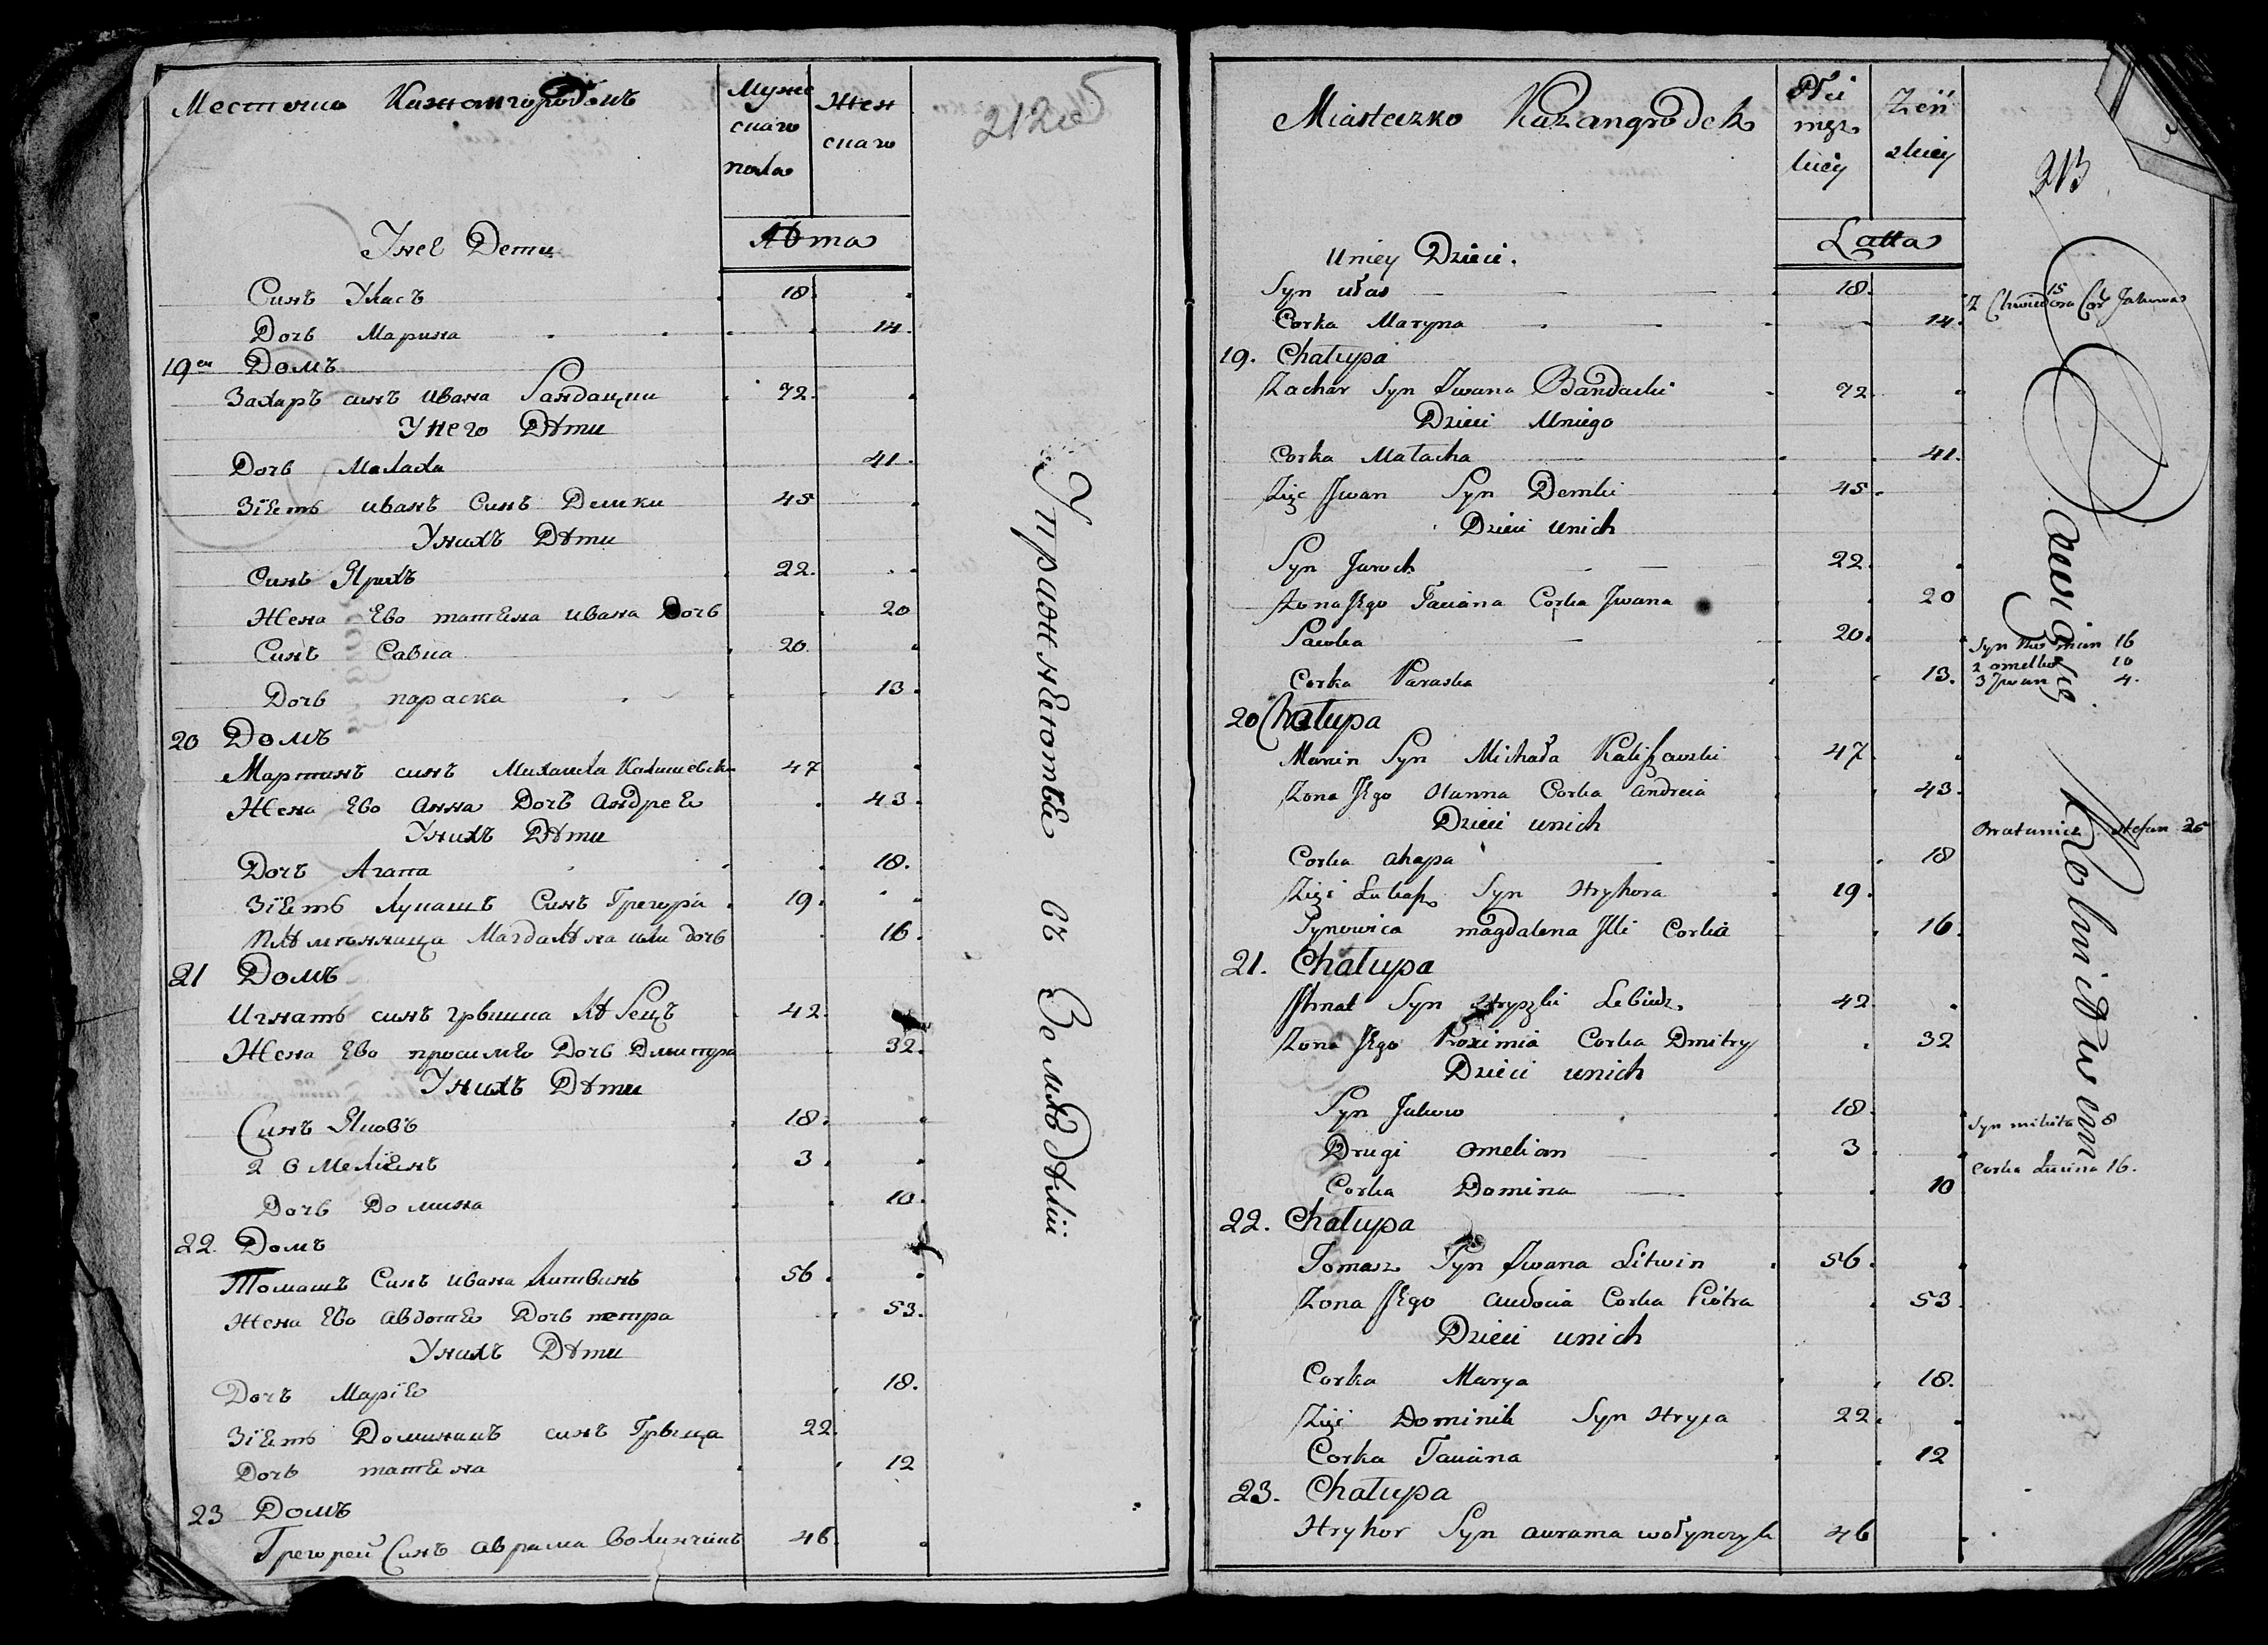 Местечко Кажангородокъ
Мужескаго пола
Женскаго
212об
Лѣта
Унее Дети
Синъ Уласъ 18
Дочь Марина 14
19ен Домъ
Захаръ синъ Ивана Бандацки 72
У него Дѣти
Дочь Малаха 41
Зіеть иванъ Синъ Демки 45
Унихъ Дѣти
Синъ Ярихъ 22
Жена Ево татѣна ивана Дочь 20
Синъ Савка 20
Дочь параска 13
20 Домъ
Мартинъ синъ Михаила Калишевски 47
Жена Ево Анна Дочъ Андрея 43
Унихъ Дѣти
Дочъ Агапа 18
Зіеть Лукашъ Синъ Грегора 19
Плѣмѣнница Магдалѣна или дочь 16
21 Домъ
Игнатъ синъ грышка Лѣбецъ 42
Жена Ево просимѣя Дочь Дмитра 32
Унихъ Дѣти
Синъ Яковъ 18
2 Омелиенъ 3
Дочь Домина 10
22 Домъ
Томашъ Синъ ивана Литвинъ 56
Жена Ево Авдотѣя Дочь петра 53
Унихъ Дѣти
Дочъ Маріѣя 18
Зіеть Доминикъ синъ Грыца 22
Дочь татѣна 12
23 Домъ
Грегорей Синъ аврама Волинчикъ 46
Упражнѣютъся въ Землѣдѣліи
Miasteczko Kazangrodek
Płci męzkiey
Zeńskiey
213
Latta
Uniey Dzieci.
Syn ułas 18
Corka Maryna 14
2 Chwiedora Cor Jakuwa 15
19. Chałupa
Zachar Syn Iwana Bandacki 72
Dzieci Uniego
Corka Małacha 41
Zięc Iwan Syn Demki 45
Dzieci unich
Syn Juroch 22
Zona Jego Taciana Corka Iwana 20
Sawka 20
Corka Paraska 13
2 omelko 10
3 Iwan 4
20 Chałupa
Marcin Syn Michała Kaliszewski 47
Zona Jego Hanna Corka andreia 43
Dzieci unich
Corka ahapa 18
Zięć Łukasz Syn Hryhora 19
Synowica magdalena Illi Corka 16
Stefan 25
21. Chałupa
Ihnat Syn Hryszki Lebiedz 42
Zona Jego Proximia Corka Dmitry 32
Dzieci unich
Syn Jakuw 18
Drugi Omelian 3
Corka Domina 10
Syn mikita 8
Corka Łucina 16
22. Chałupa
Tomasz Syn Iwana Litwin 56
Zona Jego audocia Corka Piotra 53
Dzieci unich
Corka Marya 18
Zięć Dominik Syn Hryca 22
Corka Taciana 12
23. Chałupa
Hryhor Syn aurama wołynczyk 46
Bawią się Rolnictwem